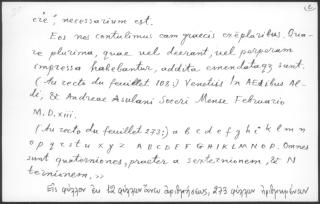 cie' necessarium est.
Eos nos contulimus cum graecis exẽplaribus. Qua-
re plurima, quae uel deerant, uel perperam
impressa habebantur, addita emendataqz sunt.
(Au recto du feuillet 108:) Venetiis In AEdibus Al-
di, & Andreae Asulani Soceri Mense Februario
M.D.xiii.
(Au recto du feuillet 273:) a b c d e f g h i k l m n
o p q r s t u x y z A B C D E F G H I K L M N O. Omnes
sunt quaterniones, praeter a sexternionem, & N
ternionem.»
Εἰς φύλλον ἐν 12 φύλλων ἄνευ ἀριθμήσεως, 273 φύλλων ἠριθμημένων